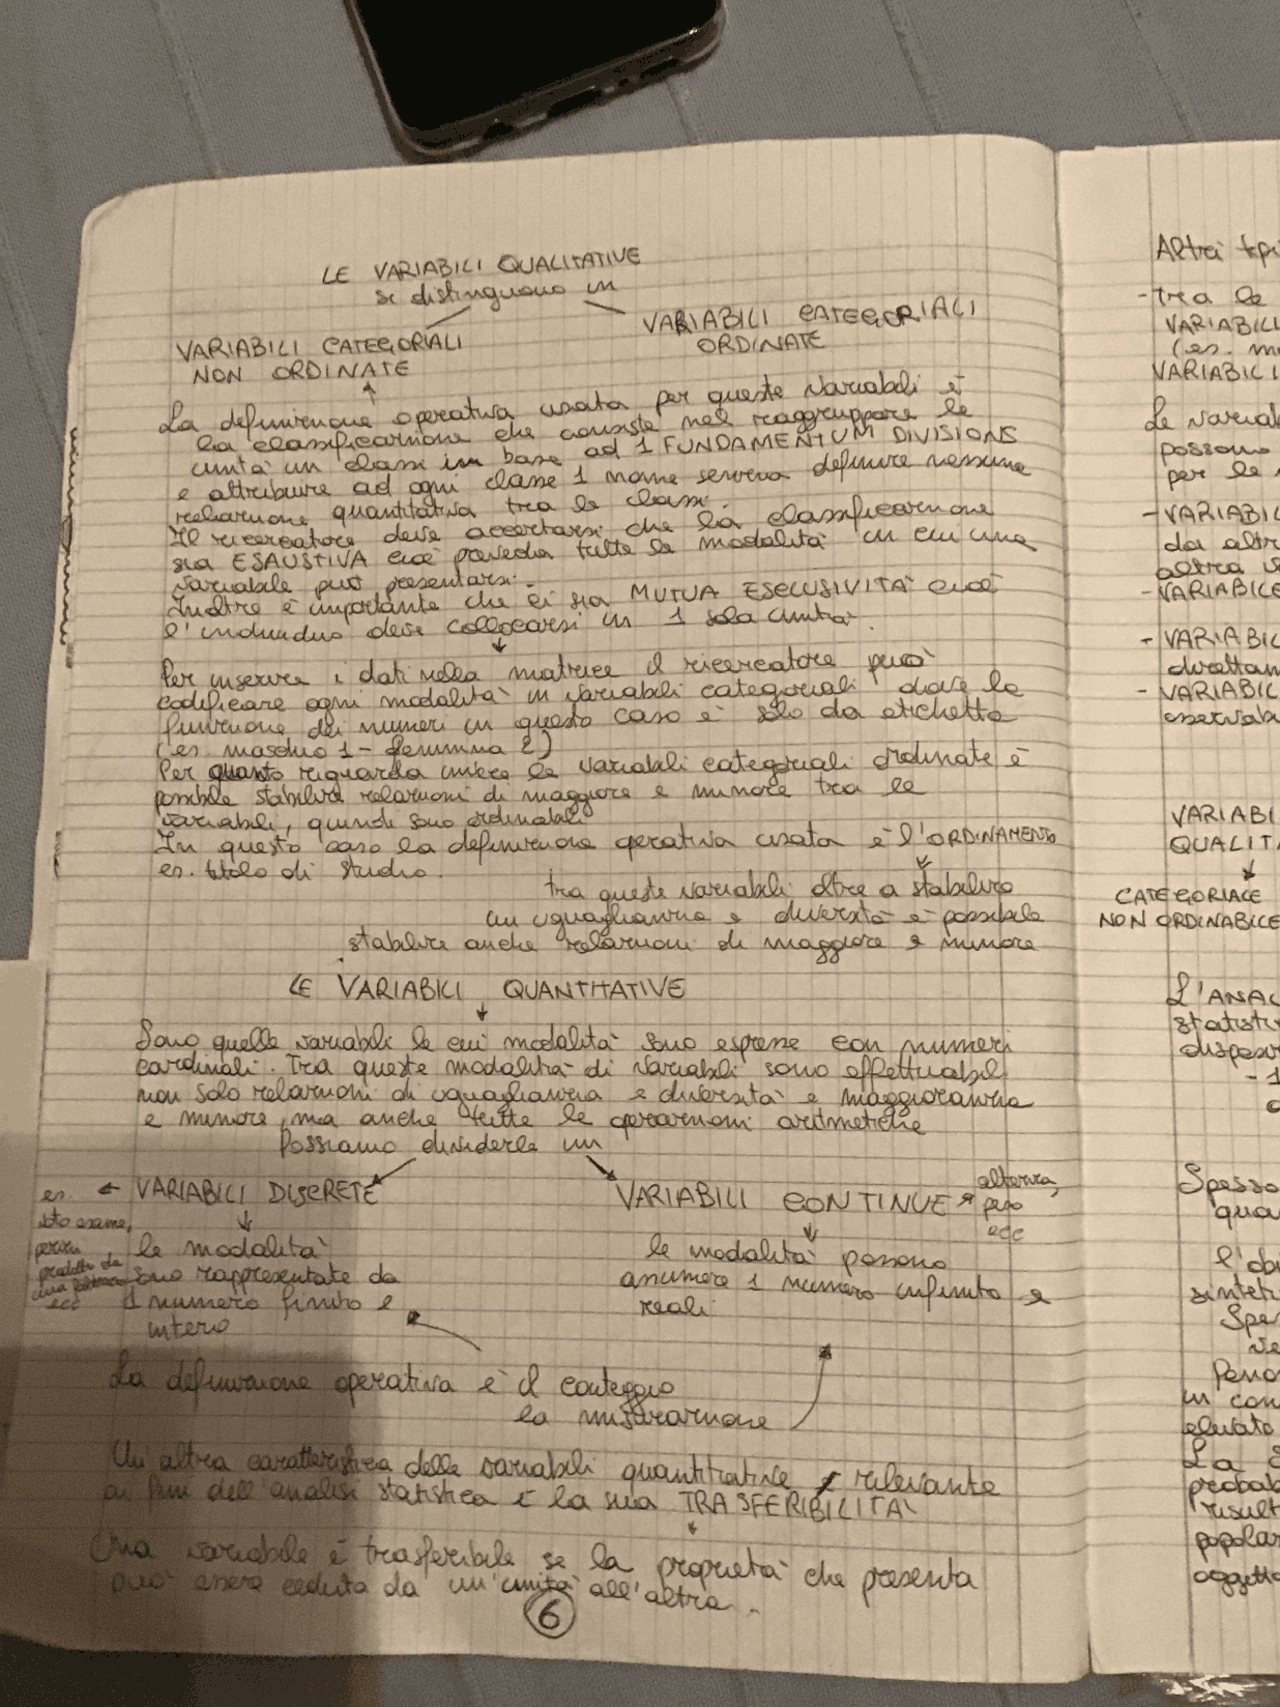 LE VARIABILI QUALITATIVE
si distinguono in
VARIABILI CATEGORIALI
NON ORDINATE
VARIABILI CATEGORIALI
ORDINATE
La definizione operativa usata per queste variabili è
la classificazione che consiste nel raggruppare le
unità in classi in base ad 1 FUNDAMENTUM DIVISIONS
e attribuire ad ogni classe 1 nome senza definire nessuna
relazione quantitativa tra le classi.
Il ricercatore deve accertarsi che la classificazione
sia ESAUSTIVA cioè preveda tutte le modalità in cui una
variabile può presentarsi.
Inoltre è importante che ci sia MUTUA ESCLUSIVITÀ cioè
l'individuo deve collocarsi in 1 sola unità.
Per inserire i dati nella matrice il ricercatore può
codificare ogni modalità in variabili categoriali dove la
funzione dei numeri in questo caso è solo da etichetta
(es. maschio 1 - femmina 2)
Per quanto riguarda invece le variabili categoriali ordinate è
possibile stabilire relazioni di maggiore e minore tra le
variabili, quindi sono ordinabili
In questo caso la definizione operativa usata è l'ORDINAMENTO
es. titolo di studio.
tra queste variabili oltre a stabilire
un uguaglianza e diversità è possibile
stabilire anche relazioni di maggiore e minore
LE VARIABILI QUANTITATIVE
Sono quelle variabili le cui modalità sono espresse con numeri
cardinali. Tra queste modalità di variabili sono effettuabili
non solo relazioni di uguaglianza e diversità e maggioranza
e minore, ma anche tutte le operazioni aritmetiche
Possiamo dividerle in
es. ← VARIABILI DISCRETE
voto esame,
prodotti da
ecc
le modalità
sono rappresentate da
1 numero finito e
intero
VARIABILI CONTINUE
altezza,
peso
ecc
le modalità possono
assumere 1 numero infinito e
reali
La definizione operativa è il conteggio
la misurazione
Un'altra caratteristica delle variabili quantitative è rilevante
ai fini dell'analisi statistica è la sua TRASFERIBILITÀ
Una variabile è trasferibile se la proprietà che presenta
può essere ceduta da un'unità all'altra.
6
Altri tipi
- tra le
VARIABILI
(es. m
VARIABILI
Le variab
possono
per le
- VARIABIL
da altr
altra
- VARIABILE
- VARIABIL
direttam
- VARIABIL
osservab
VARIABI
QUALITA
CATEGORIALE
NON ORDINABILE
L'ANAL
statisti
dispos
- 1
Spesso
qua
l'ob
sintet
Spe
ve
Peno
in con
elevato
La
probab
risult
popolaz
oggetto